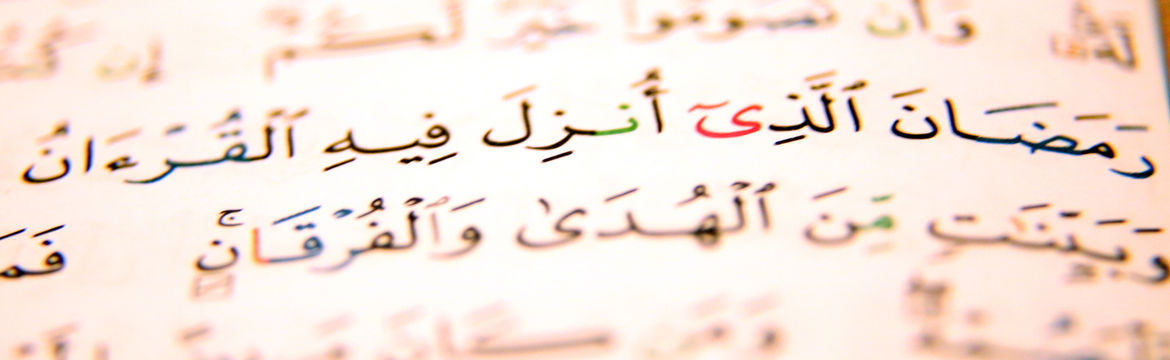 وَأَن تَصُومُوا۟ خَيْرٌ لَّكُمْ إِن كُن
رَمَضَانَ ٱلَّذِىٓ أُنزِلَ فِيهِ ٱلْقُرْءَانُ
وَبَيِّنَٰتٍ مِّنَ ٱلْهُدَىٰ وَٱلْفُرْقَانِ ۚ فَمَ
وَمَن كَانَ